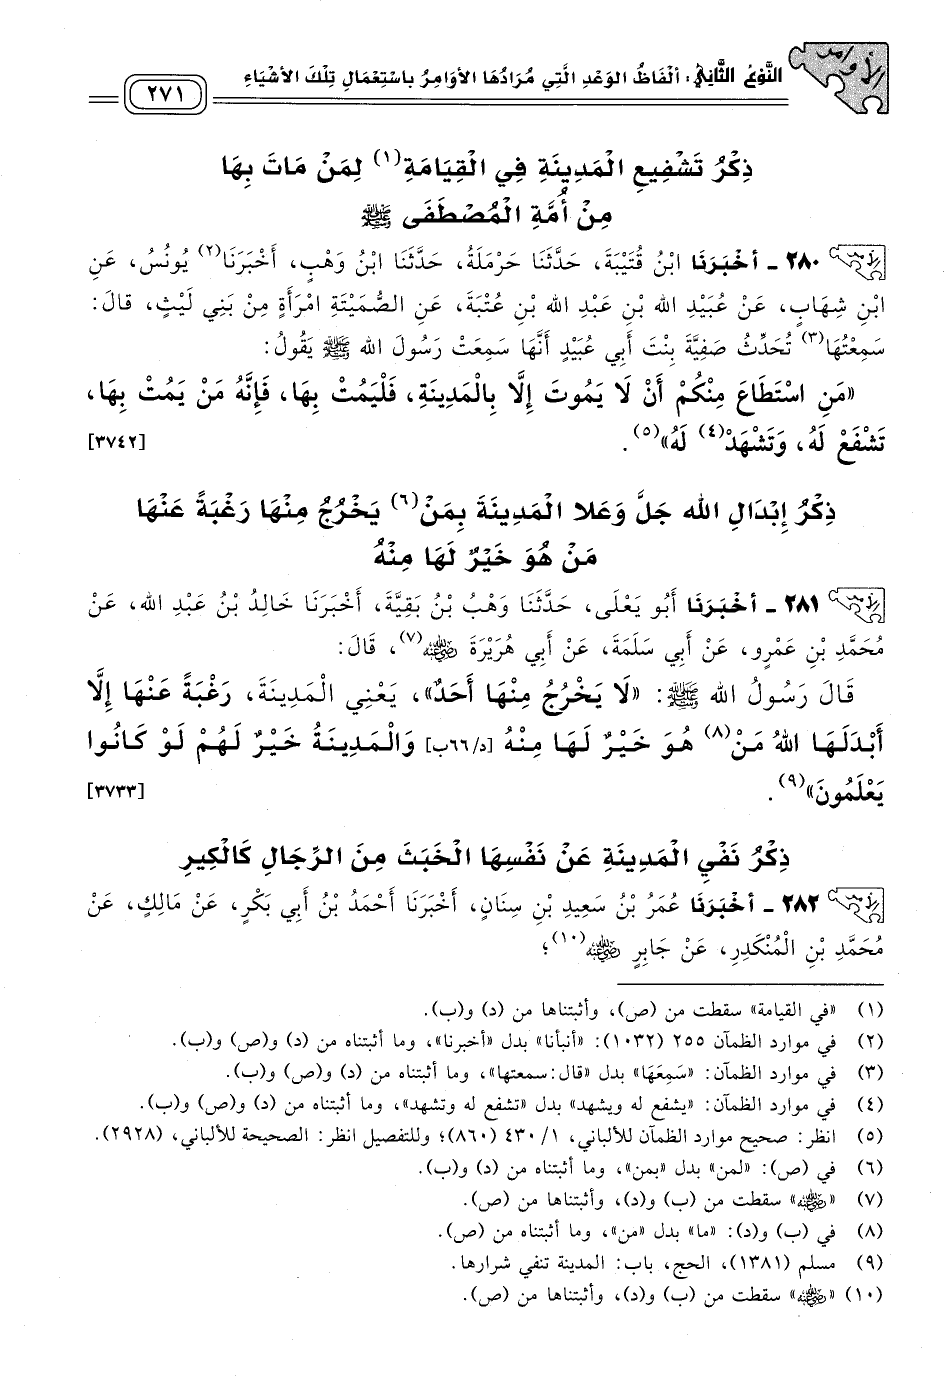 الأوامر
النَّوْعُ الثَّانِي: أَلْفَاظُ الوَعْدِ الَّتِي مُرَادُهَا الأَوَامِرُ بِاسْتِعْمَالِ تِلْكَ الأَشْيَاءِ
٢٧١
ذِكْرُ تَشْفِيعِ الْمَدِينَةِ فِي الْقِيَامَةِ(١) لِمَنْ مَاتَ بِهَا
مِنْ أُمَّةِ الْمُصْطَفَى ﷺ
٢٨٠ - أَخْبَرَنَا ابْنُ قُتَيْبَةَ، حَدَّثَنَا حَرْمَلَةُ، حَدَّثَنَا ابْنُ وَهْبٍ، أَخْبَرَنَا(٢) يُونُسُ، عَنِ
ابْنِ شِهَابٍ، عَنْ عُبَيْدِ الله بْنِ عَبْدِ الله بْنِ عُتْبَةَ، عَنِ الصُّمَيْتَةِ امْرَأَةٍ مِنْ بَنِي لَيْثٍ، قالَ:
سَمِعْتُهَا(٣) تُحَدِّثُ صَفِيَّةَ بِنْتَ أَبِي عُبَيْدٍ أَنَّهَا سَمِعَتْ رَسُولَ الله ﷺ يَقُولُ:
«مَنِ اسْتَطَاعَ مِنْكُمْ أَنْ لَا يَمُوتَ إِلَّا بِالْمَدِينَةِ، فَلْيَمُتْ بِهَا، فَإِنَّهُ مَنْ يَمُتْ بِهَا،
تَشْفَعْ لَهُ، وَتَشْهَدْ(٤) لَهُ»(٥). [٣٧٤٢]
ذِكْرُ إِبْدَالِ الله جَلَّ وَعَلا الْمَدِينَةَ بِمَنْ(٦) يَخْرُجُ مِنْهَا رَغْبَةً عَنْهَا
مَنْ هُوَ خَيْرٌ لَهَا مِنْهُ
٢٨١ - أَخْبَرَنَا أَبُو يَعْلَى، حَدَّثَنَا وَهْبُ بْنُ بَقِيَّةَ، أَخْبَرَنَا خَالِدُ بْنُ عَبْدِ الله، عَنْ
مُحَمَّدِ بْنِ عَمْرٍو، عَنْ أَبِي سَلَمَةَ، عَنْ أَبِي هُرَيْرَةَ رضي الله عنه(٧)، قَالَ:
قَالَ رَسُولُ الله ﷺ: «لَا يَخْرُجُ مِنْهَا أَحَدٌ»، يَعْنِي الْمَدِينَةَ، رَغْبَةً عَنْهَا إِلَّا
أَبْدَلَهَا اللهُ مَنْ(٨) هُوَ خَيْرٌ لَهَا مِنْهُ [د/٦٦ب] وَالْمَدِينَةُ خَيْرٌ لَهُمْ لَوْ كَانُوا
يَعْلَمُونَ»(٩). [٣٧٣٣]
ذِكْرُ نَفْيِ الْمَدِينَةِ عَنْ نَفْسِهَا الْخَبَثَ مِنَ الرِّجَالِ كَالْكِيرِ
٢٨٢ - أَخْبَرَنَا عُمَرُ بْنُ سَعِيدِ بْنِ سِنَانٍ، أَخْبَرَنَا أَحْمَدُ بْنُ أَبِي بَكْرٍ، عَنْ مَالِكٍ، عَنْ
مُحَمَّدِ بْنِ الْمُنْكَدِرِ، عَنْ جَابِرٍ رضي الله عنه(١٠)؛
(١) «في القيامة» سقطت من (ص)، وأثبتناها من (د) و(ب).
(٢) في موارد الظمآن ٢٥٥ (١٠٣٢): «أنبأنا» بدل «أخبرنا»، وما أثبتناه من (د) و(ص) و(ب).
(٣) في موارد الظمآن: «سَمِعَهَا» بدل «قال: سمعتها»، وما أثبتناه من (د) و(ص) و(ب).
(٤) في موارد الظمآن: «يشفع له ويشهد» بدل «تشفع له وتشهد»، وما أثبتناه من (د) و(ص) و(ب).
(٥) انظر: صحيح موارد الظمآن للألباني، ١/ ٤٣٠ (٨٦٠)؛ وللتفصيل انظر: الصحيحة للألباني، (٢٩٢٨).
(٦) في (ص): «لمن» بدل «بمن»، وما أثبتناه من (د) و(ب).
(٧) «رضي الله عنه» سقطت من (ب) و(د)، وأثبتناها من (ص).
(٨) في (ب) و(د): «ما» بدل «من»، وما أثبتناه من (ص).
(٩) مسلم (١٣٨١)، الحج، باب: المدينة تنفي شرارها.
(١٠) «رضي الله عنه» سقطت من (ب) و(د)، وأثبتناها من (ص).